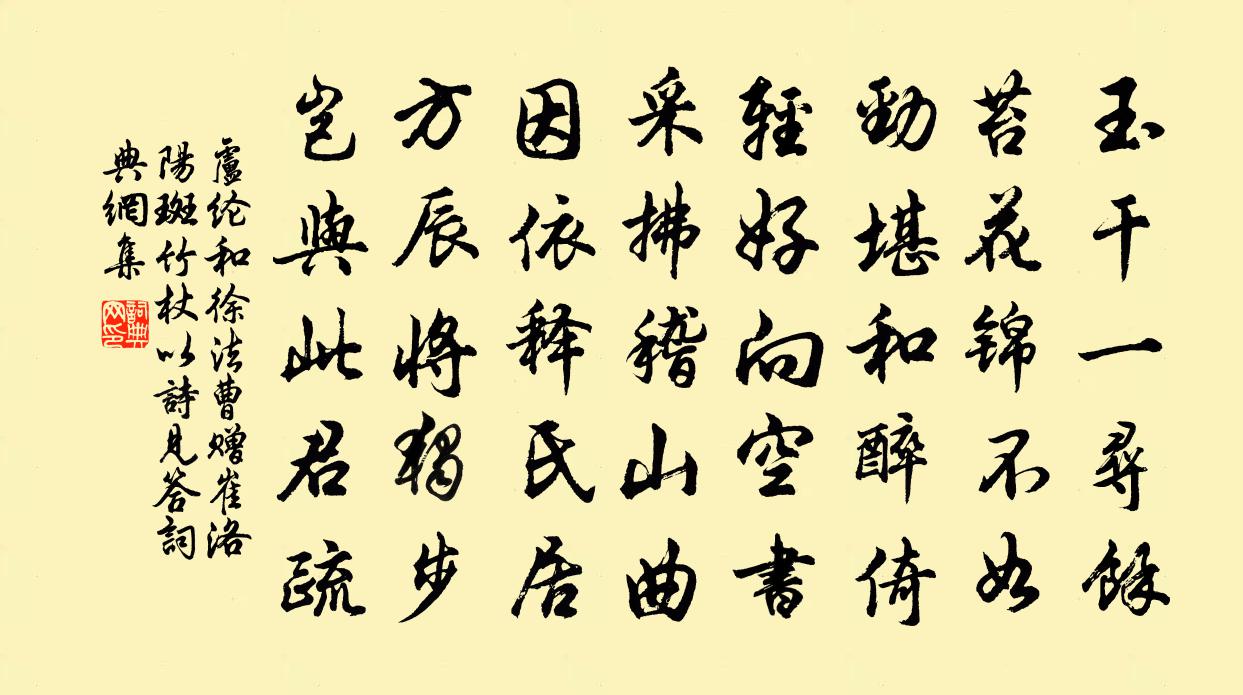 玉干一尋餘
苔花錦不如
勁堪和醉倚
輕好向空書
采拂稽山曲
因依释氏居
方辰將獨步
豈與此君疏
盧纶和徐法曹赠崔洛
陽斑竹杖以詩見答詞
典網集
詞典网印